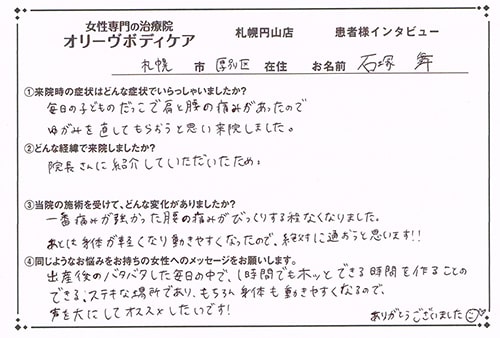 女性専門の治療院
オリーヴボディケア 札幌円山店 患者様インタビュー
札幌 市 厚別区 在住 お名前 石塚 舞
①来院時の症状はどんな症状でいらっしゃいましたか?
毎日の子どものだっこで肩と腰の痛みがあったので
ゆがみを直してもらおうと思い来院しました。
②どんな経緯で来院しましたか?
院長さんに紹介していただいたため。
③当院の施術を受けて、どんな変化がありましたか?
一番痛みが強かった腰の痛みがびっくりする程なくなりました。
あとは身体が軽くなり動きやすくなったので、絶対に通おうと思います!!
④同じようなお悩みをお持ちの女性へのメッセージをお願いします。
出産後のバタバタした毎日の中で、1時間でもホッとできる時間を作ることの
できる、ステキな場所であり、もちろん身体も動きやすくなるので、
声を大にしてオススメしたいです!
ありがとうございました